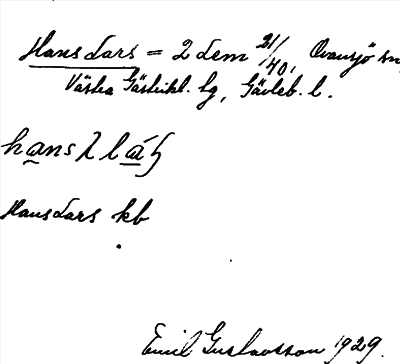 Hans Lars = 2 dem 21/40, Ovansjö sn,
Västra Gästrikl. hg, Gävleb. l.
Hans Lars kb
Emil Gustavsson 1929.